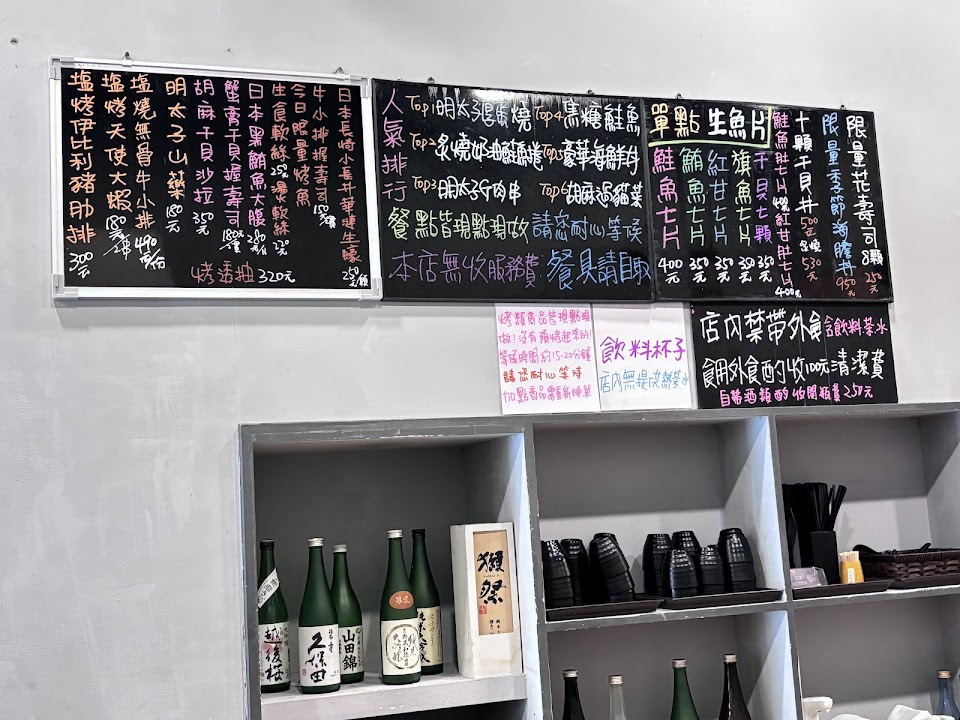 日本長崎小長井華蓮生蠔 250元/顆
牛小排握壽司 150元/2貫
今日限量烤魚
生食軟絲 250元 湯火軟絲 220元
日本黑鮪魚大腹 280元/2貫
蟹膏干貝握壽司 180元/2貫
胡麻干貝沙拉 350元
明太子山藥 180元
塩燒無骨牛小排 490元/份
塩烤天使大蝦 180元/2隻
塩烤伊比利豬肋排 300元
烤透抽 320元
人氣排行
Top1 明太子蛋燒
Top2 炙燒奶油鮭魚捲
Top3 明太子肉串
Top4 焦糖鮭魚
Top5 豪華海鮮丼
Top6 胡麻過貓菜
餐點皆現點現做 請您耐心等候
本店無收服務費 餐具請自取
單點 生魚片
限量花壽司 8顆 250元
限量季節海膽丼 950元
十顆干貝丼 500元 炙燒530元
鮭魚肚七片 400元 紅甘丼七片 400元
干貝七顆 350元
旗魚七片 350元
紅甘七片 350元
鮪魚七片 350元
鮭魚七片 400元
烤類商品皆現點現
做!沒有預烤起來的!
等候時間約15-20分鐘
請您耐心等待
加點商品需重新排單
飲料杯子
店內無提供熱茶水
店內禁帶外食 含飲料.茶水
食用外食酌收100元清潔費
自帶酒類酌收開瓶費250元
越後桜
久保田
山田錦
獺祭